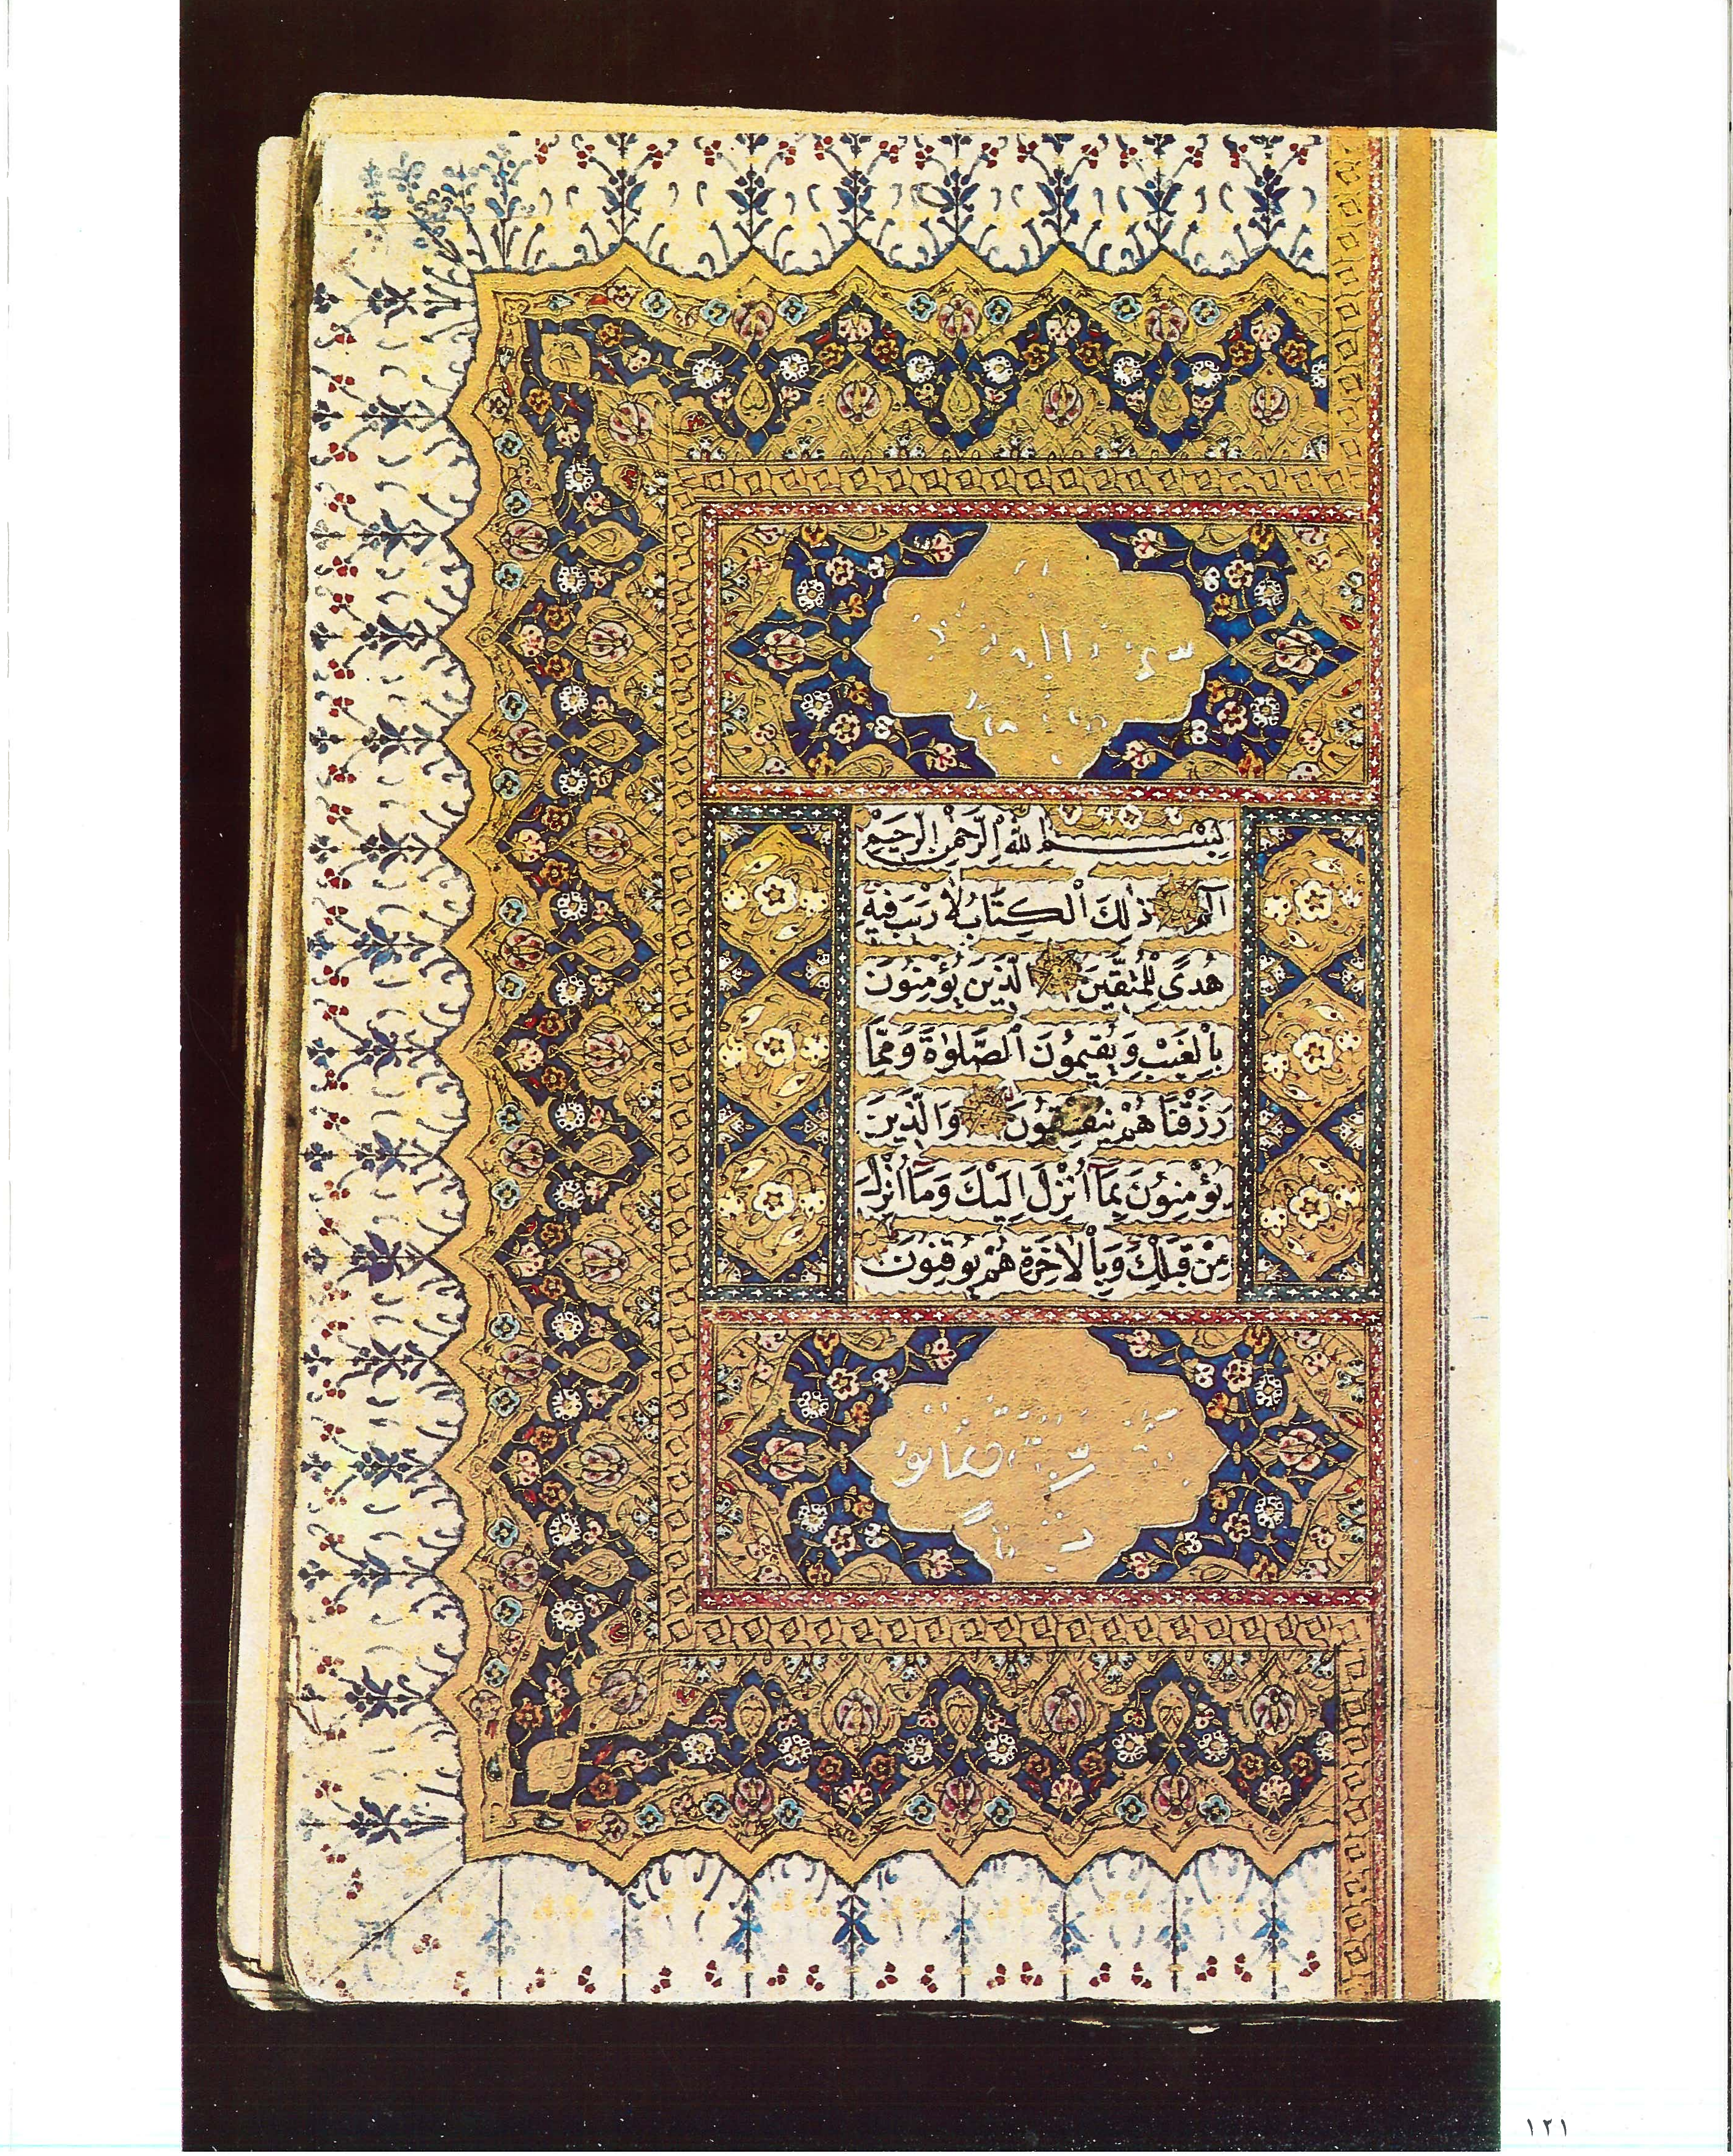 بِسْمِ اللّٰهِ الرَّحْمٰنِ الرَّحِيمِ
الٓمٓ ذٰلِكَ الْكِتَابُ لَا رَيْبَ فِيهِ
هُدًى لِلْمُتَّقِينَ الَّذِينَ يُؤْمِنُونَ
بِالْغَيْبِ وَيُقِيمُونَ الصَّلٰوةَ وَمِمَّا
رَزَقْنَاهُمْ يُنْفِقُونَ وَالَّذِينَ
يُؤْمِنُونَ بِمَٓا أُنْزِلَ إِلَيْكَ وَمَٓا أُنْزِلَ
مِنْ قَبْلِكَ وَبِالْاٰخِرَةِ هُمْ يُوقِنُونَ
١٢١